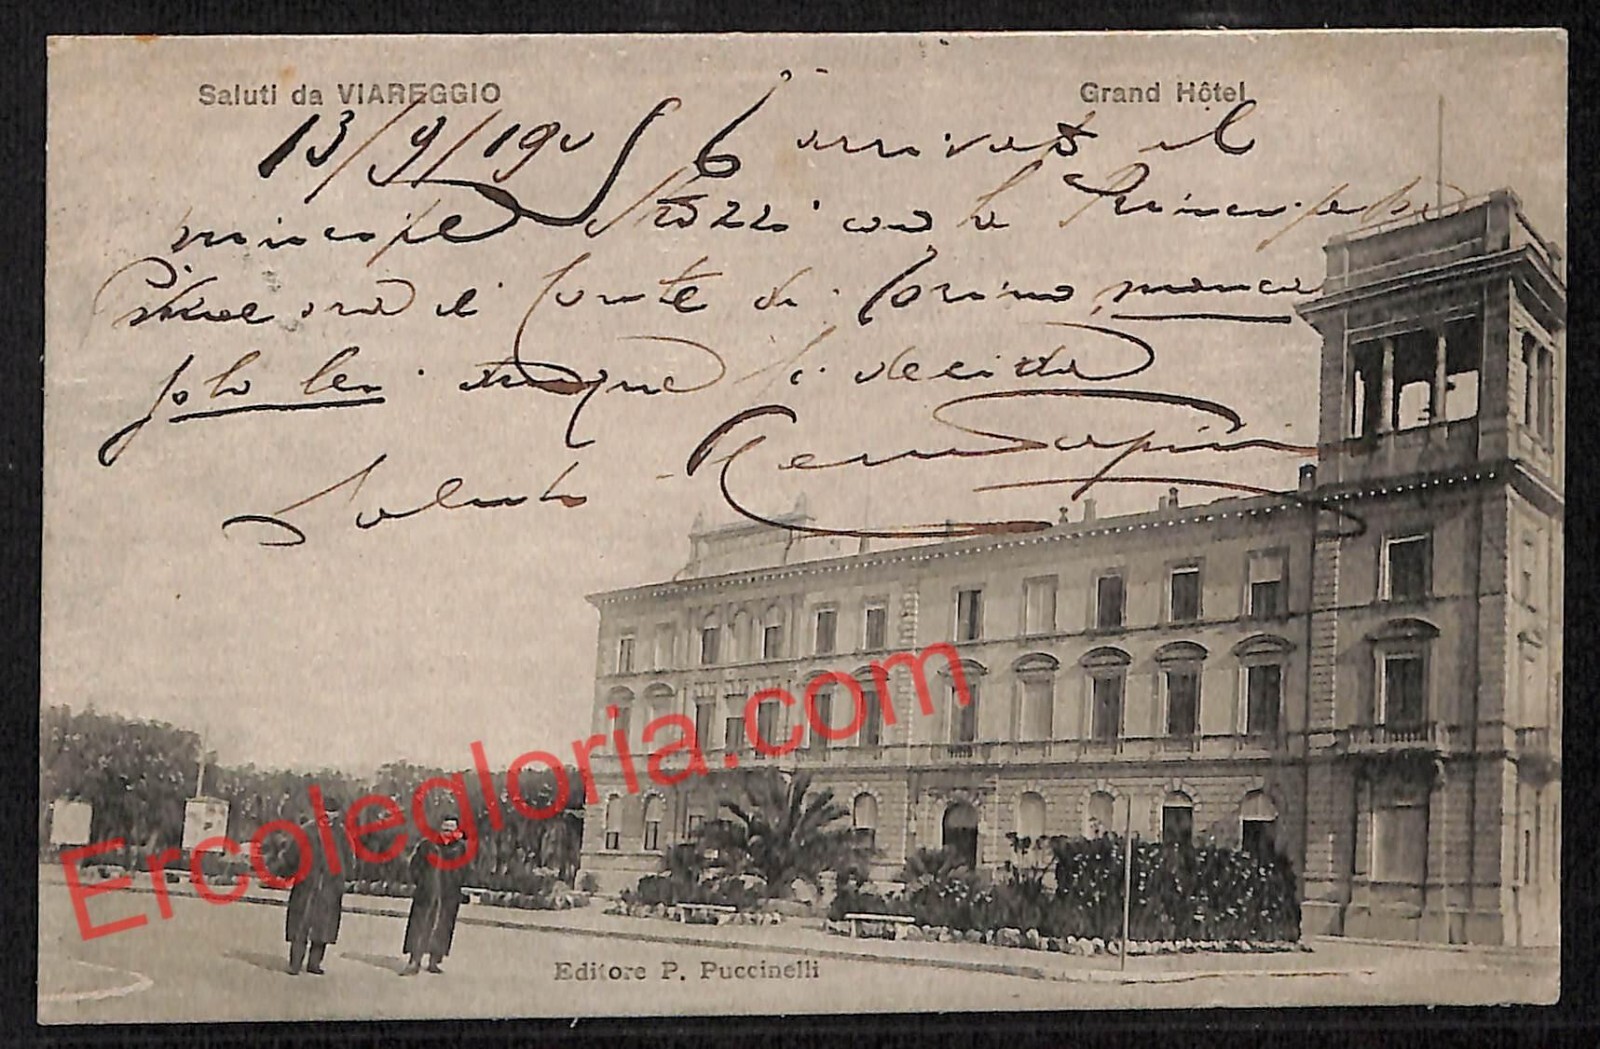 Saluti da VIAREGGIO
Grand Hôtel
13/9/1905 È arrivato il
principe Strozzi con la Principessa
ora il Conte di Torino manca
solo lei dunque si decida
Saluti
Ercolegloria.com
Editore P. Puccinelli